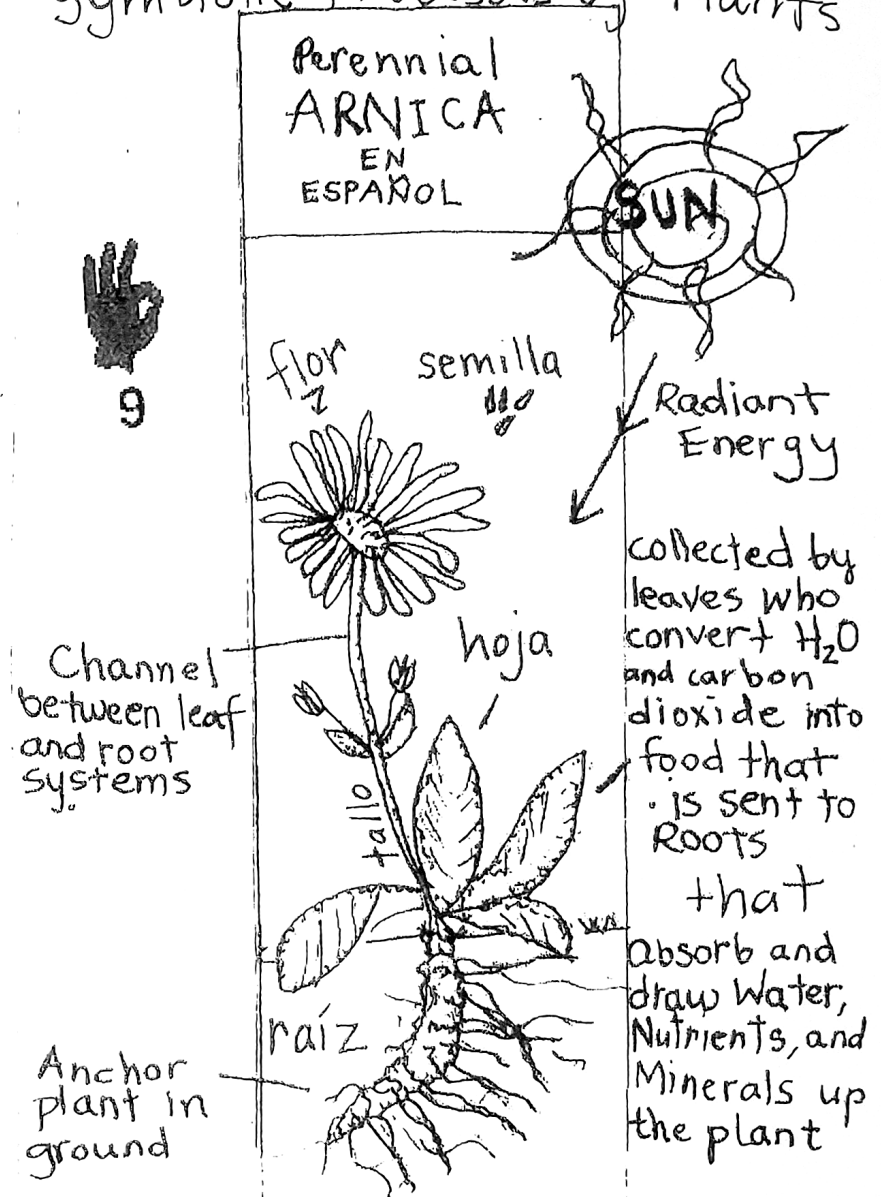 Plants
Perennial
ARNICA
EN
ESPAÑOL
SUN
9
flor
semilla
Radiant
Energy
collected by
leaves who
convert H₂O
and carbon
dioxide into
food that
is sent to
ROOTS
that
absorb and
draw Water,
Nutrients, and
Minerals up
the plant
hoja
Channel
between leaf
and root
systems
tallo
raíz
Anchor
plant in
ground